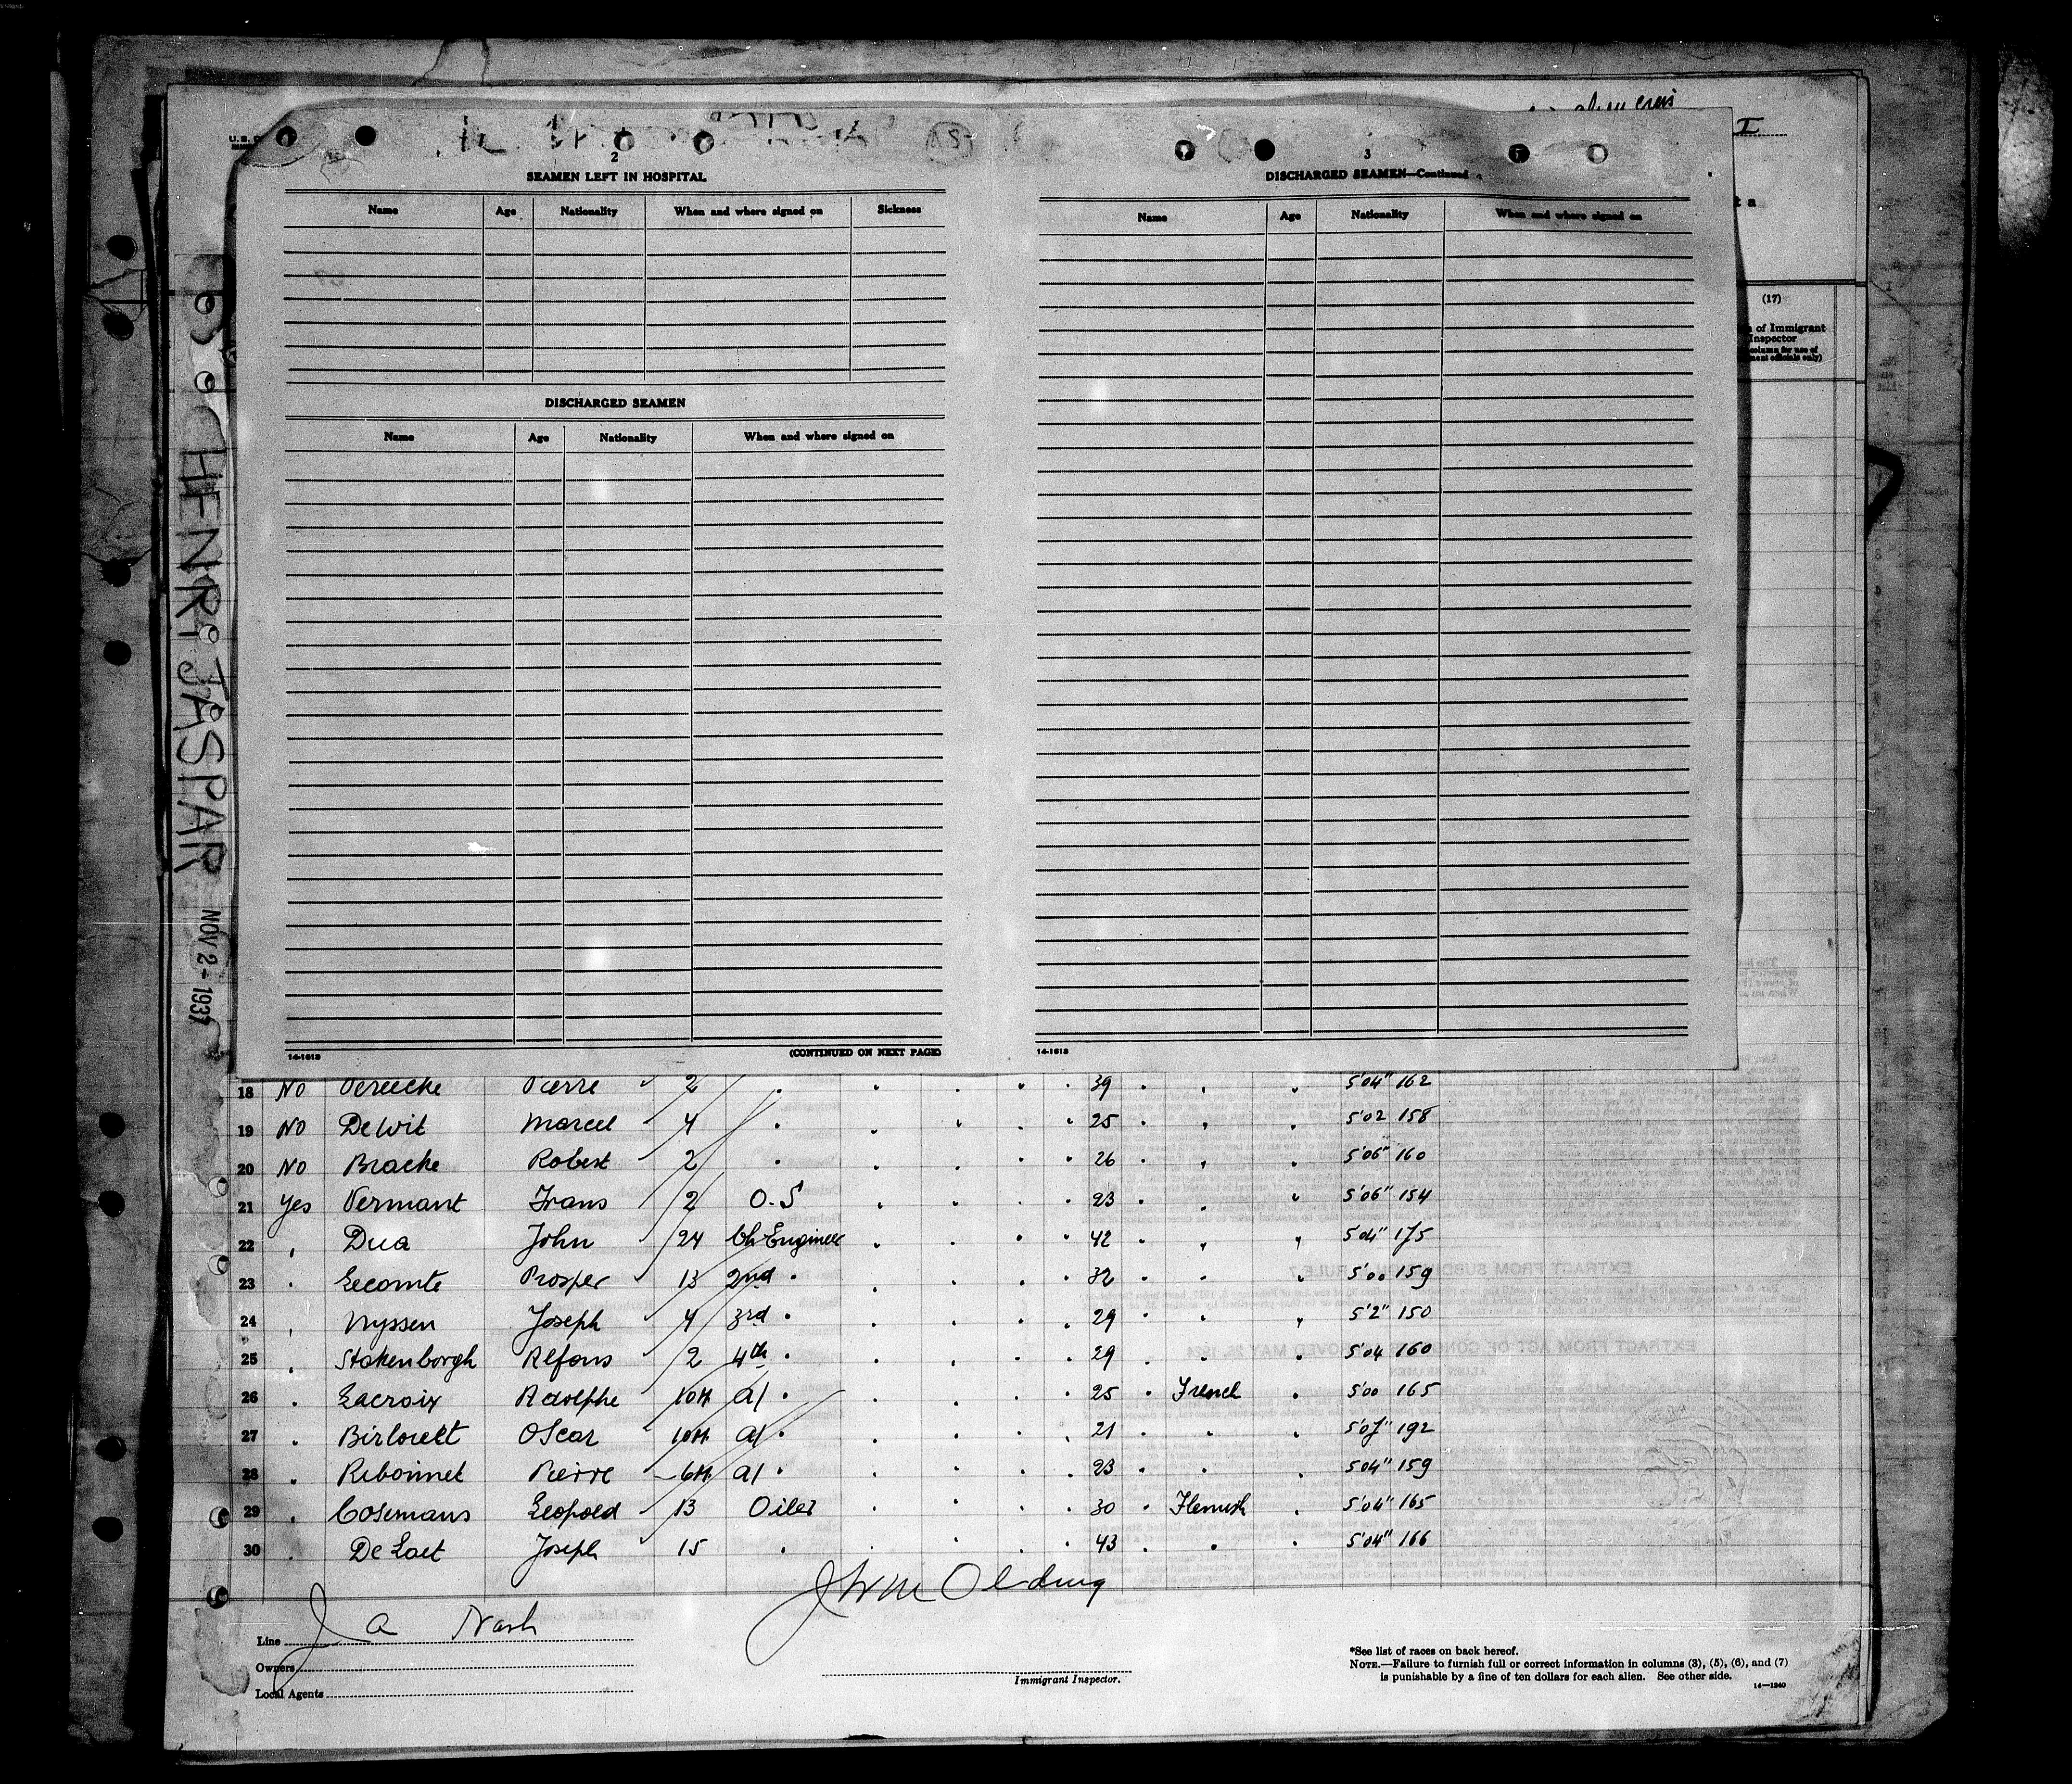 HENRI JASPAR NOV 2 - 1937
2
SEAMEN LEFT IN HOSPITAL
Name Age Nationality When and where signed on Sickness
DISCHARGED SEAMEN
Name Age Nationality When and where signed on
14-1613 (CONTINUED ON NEXT PAGE)
3
DISCHARGED SEAMEN—Continued
Name Age Nationality When and where signed on
14-1613
(17)
of Immigrant
Inspector
column for use of
ment officials only)
18 No Vereecke Pierre 2 39 5'04" 162
19 No De Wit Marcel 4 25 5'02 158
20 No Bracke Robert 2 26 5'06" 160
21 Yes Vermant Frans 2 O.S 23 5'06" 154
22 Dua John 24 Ch. Engineer 42 5'04" 175
23 Lecomte Prosper 13 2nd 32 5'00 159
24 Nyssen Joseph 4 3rd 29 5'2" 150
25 Stakenborgh Alfons 2 4th 29 5'04 160
26 Lacroix Adolphe 10M a/ 25 French 5'00 165
27 Oscar 10M a/ 21 5'07" 192
28 Ribonnet Pierre 6M a/ 23 5'04" 159
29 Cosemans Leopold 13 Oiler 30 Flemish 5'04" 165
30 De Laet Joseph 15 43 5'04" 166
J W M Olding
Line J A Nash
Owners
Local Agents
Immigrant Inspector.
*See list of races on back hereof.
NOTE.—Failure to furnish full or correct information in columns (3), (5), (6), and (7)
is punishable by a fine of ten dollars for each alien. See other side.
14—1240